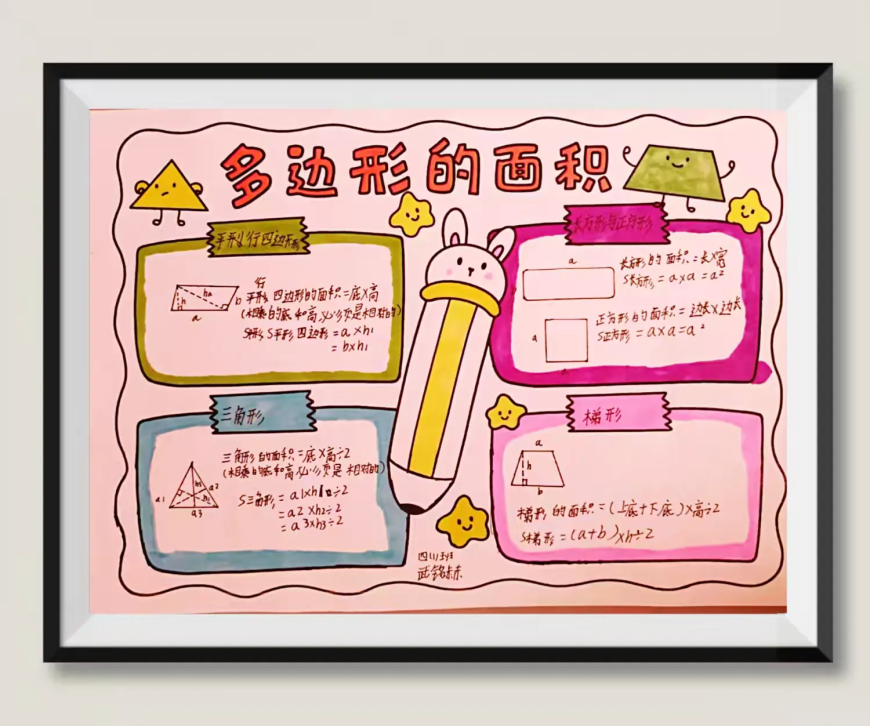 多边形的面积
平形行四边形
h
ha
b
a
行
平形四边形的面积=底×高
(相乘的底和高必须是相对的)
S平形四边形=a×h1
=b×h1
长方形与正方形
a
长方形的面积=长×宽
S长方形=a×a=a²
a
正方形的面积=边长×边长
S正方形=a×a=a²
三角形
三角形的面积=底×高÷2
(相乘的底和高必须是相对的)
a1
a2
a3
S三角形=a1×h1÷2
=a2×h2÷2
=a3×h3÷2
梯形
a
h
b
梯形的面积=(上底+下底)×高÷2
S梯形=(a+b)×h÷2